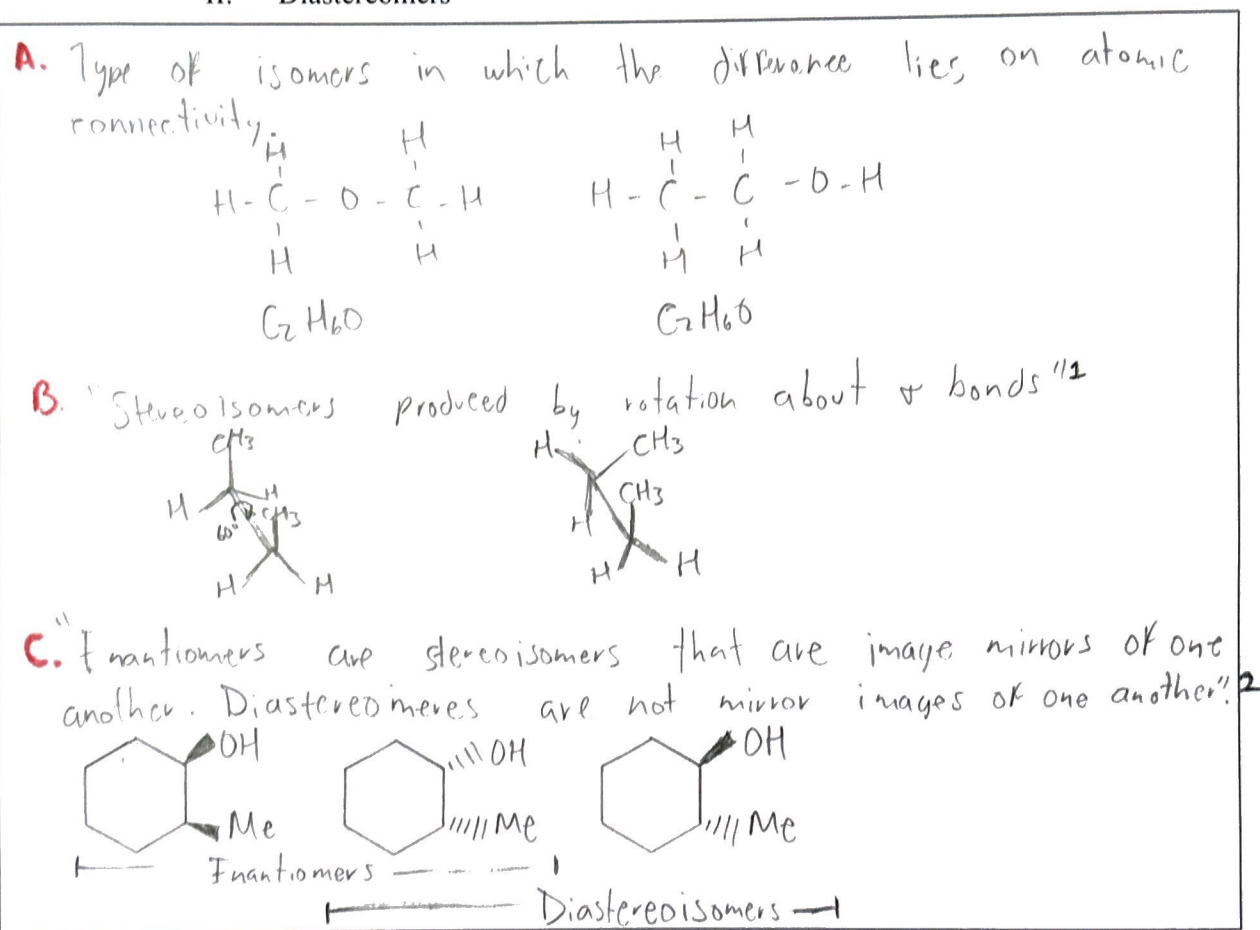 II. Diastereomers
A. Type of isomers in which the difference lies on atomic
connectivity.
H H H H
H - C - O - C - H H - C - C - O - H
H H H H
C2H6O C2H6O
B. "Stereoisomers produced by rotation about σ bonds"1
CH3 H CH3
H H CH3
60° CH3 H
H H H H
C. "Enantiomers are stereoisomers that are image mirrors of one
another. Diastereomeres are not mirror images of one another".2
OH OH OH
Me Me Me
Enantiomers
Diastereoisomers